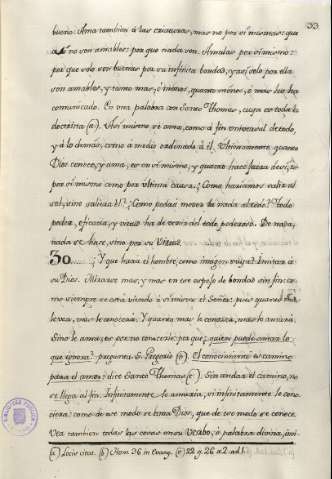 33
bueno: Ama tambien á las criaturas, mas no por si mismas: que
no son amables: por que nada son. Amalas por si mismo:
por que solo son buenas por su infinita bondad, y asi solo por ella
son amables, y tanto mas, ó menos, quanto menos, ó mas les ha
comunicado. En una palabra con Santo Thomas, cuya es toda la
doctrina (a). Asi mismo se ama, como á fin universal de todo,
y á lo demás, como a medio ordenado á él. Ultimamente, quanto
Dios conoce, y ama, es en si mismo, y quanto hace fuera de si, es
por si mismo como por última causa. ¿Como hariamos salir al
sol, si no saliera él? ¿Como podrá mover de nada al todo? Todo
poder, eficacia, y virtud ha de venir del todo poderoso. De nada,
nada se hace, sino por su Virtud.
30. ¿Y que hará el hombre como imagen suya? Imitar á
su Dios. Mirarse mas, y mas en ese espejo de bondad sin fin: co-
mo siempre se está viendo á si mismo el Señor: pues quanto mas
le vea, mas le conocerá: Y quanto mas le conozca, mas lo amará.
Sino le ama, es por no conocerle: por que ¿quien puede amar lo
que ignora? pregunta S. Gregorio (b). El conocimiento es camino
para el amor: dice Santo Thomas (c). Sin andar el camino, no
se llega al fin. Infinitamente le amaria, si infinitamente le cono-
ciera: como de ese modo se ama Dios, que de ese modo se conoce.
Vea tambien todas las cosas en su Verbo, ó palabra divina, ani-
(a) Locis citat. (b) Hom. 36 in Evang. (c) 22 q. 26 a. 2. ad 1.